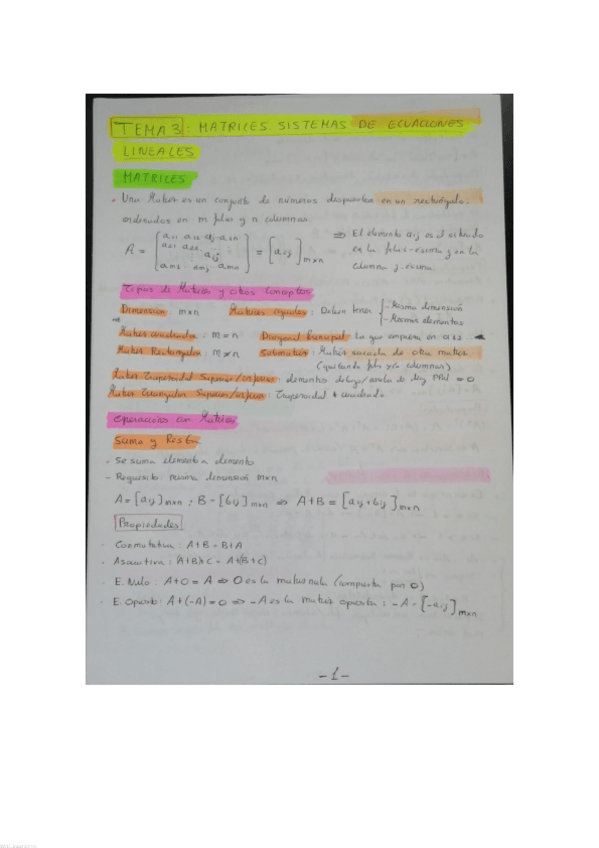 TEMA 3: MATRICES SISTEMAS DE ECUACIONES
LINEALES
MATRICES
· Una Matriz es un conjunto de números dispuestos en un rectángulo,
ordenados en m filas y n columnas.
A = [a11 a12 aij - a1n ⇒ El elemento aij es el situado
a21 a22 ... aij = [aij]m×n en la fila i-esima y en la
am1 - amj - amn] columna j-esima
Tipos de Matrices y otros Conceptos
Dimensión: m×n Matrices iguales: Deben tener - Misma dimensión
- Mismos elementos
Matriz cuadrada: m=n Diagonal Principal: La que empieza en a11
Matriz Rectangular: m≠n Submatriz: Matriz sacada de otra matriz
(quitando filas y/o columnas)
Matriz Trapezoidal Superior/inferior: elementos debajo/arriba de diag = 0
Matriz Triangular Superior/inferior: Trapezoidal + cuadrada
Operaciones con Matrices
Suma y Resta
- Se suma elemento a elemento
- Requisito: misma dimensión m×n
A=[aij]m×n ; B=[bij]m×n ⇒ A+B=[aij+bij]m×n
Propiedades
· Conmutativa: A+B=B+A
· Asociativa: (A+B)+C = A+(B+C)
· E. Nulo: A+0=A ⇒ 0 es la matriz nula (compuesta por 0)
· E. Opuesto: A+(-A)=0 ⇒ -A es la matriz opuesta: -A=[-aij]m×n
-1-